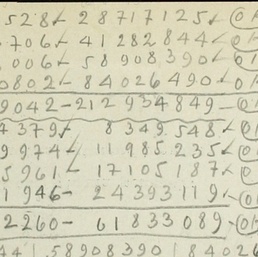 528✓ 28717125✓ OK
706✓ 41282844✓ OK
006✓ 58908390✓ OK
0802✓ 84026490✓ OK
9042-212934849-OK
4379✓ 8349548✓ OK
9974✓ 11985235✓ OK
5961✓ 17105187✓ OK
1946- 24393119✓ OK
2260- 61833089-OK
58908390 84026